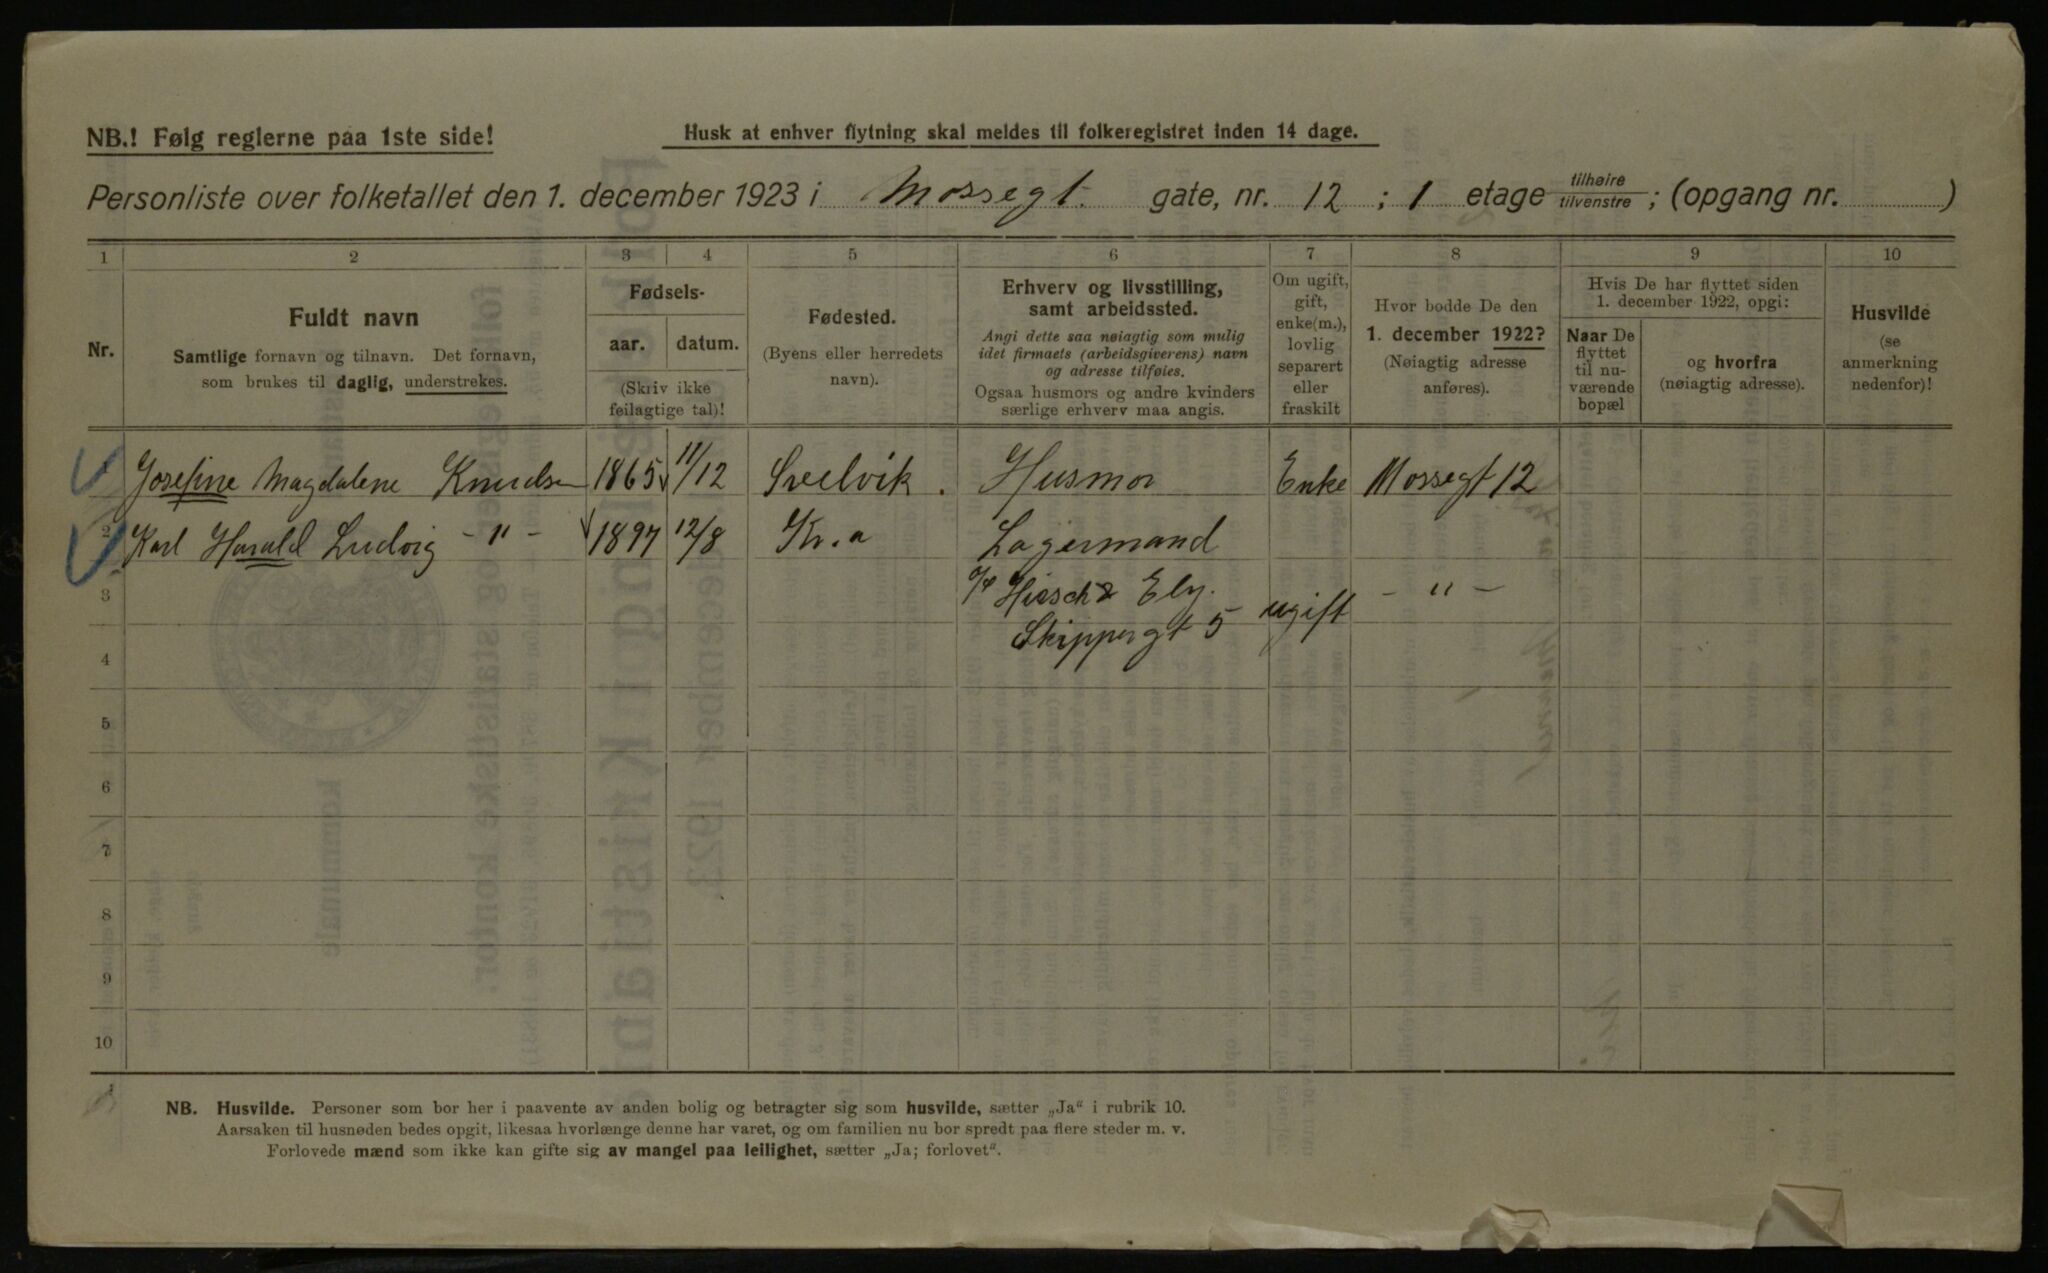 NB.! Følg reglerne paa 1ste side!
Husk at enhver flytning skal meldes til folkeregistret inden 14 dage.
Personliste over folketallet den 1. december 1923 i Mossegt. gate, nr. 12 ; 1 etage tilhøire/tilvenstre ; (opgang nr. )
1 2 3 4 5 6 7 8 9 10
Nr.
Fuldt navn
Samtlige fornavn og tilnavn. Det fornavn,
som brukes til daglig, understrekes.
Fødsels-
aar. datum.
(Skriv ikke
feilagtige tal)!
Fødested.
(Byens eller herredets
navn).
Erhverv og livsstilling,
samt arbeidssted.
Angi dette saa nøiagtig som mulig
idet firmaets (arbeidsgiverens) navn
og adresse tilføies.
Ogsaa husmors og andre kvinders
særlige erhverv maa angis.
Om ugift,
gift,
enke(m.),
lovlig
separert
eller
fraskilt
Hvor bodde De den
1. december 1922?
(Nøiagtig adresse
anføres).
Hvis De har flyttet siden
1. december 1922, opgi:
Naar De
flyttet
til nu-
værende
bopæl
og hvorfra
(nøiagtig adresse).
Husvilde
(se
anmerkning
nedenfor)!
1 Josefine Magdalene Knudsen 1865 11/12 Svelvik. Husmor Enke Mossegt 12
2 Karl Harald Ludvig - " - 1897 12/8 Kr.a Lagermand
3 Hirsch & Ely. ugift - " -
Skippergt 5
4
5
6
7
8
9
10
NB. Husvilde. Personer som bor her i paavente av anden bolig og betragter sig som husvilde, sætter „Ja“ i rubrik 10.
Aarsaken til husnøden bedes opgit, likesaa hvorlænge denne har varet, og om familien nu bor spredt paa flere steder m. v.
Forlovede mænd som ikke kan gifte sig av mangel paa leilighet, sætter „Ja; forlovet“.